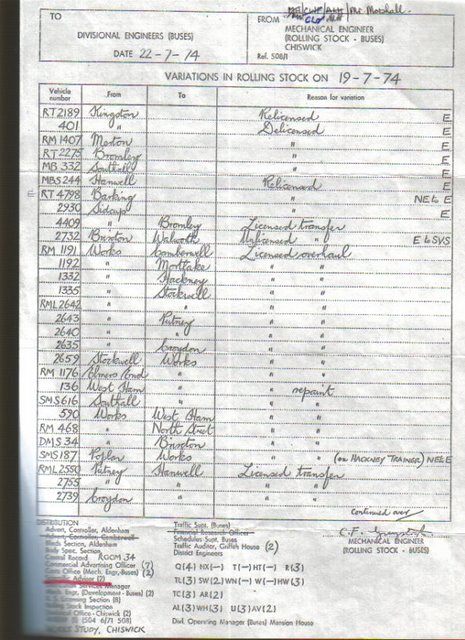 TO
DIVISIONAL ENGINEERS (BUSES)
DATE 22-7-74
FROM
Mr Marshall.
MECHANICAL ENGINEER
(ROLLING STOCK - BUSES)
CHISWICK
Ref. 508/1
VARIATIONS IN ROLLING STOCK ON 19-7-74
Vehicle number From To Reason for variation
RT2189 Kingston Relicensed E
401 " Delicensed E
RM 1407 Merton " E
RT 2275 Bromley " E
MB 332 Southall " E
MBS244 Hanwell Relicensed E
E RT 4798 Barking " NE to E
2930 Sidcup " E
4409 " Bromley Licensed transfer
2732 Brixton Walworth Unlicensed " E to SVS
RM 1191 Works Camberwell Licensed overhaul
1192 " Mortlake " "
1332 " Hackney " "
1335 " Stockwell " "
RML2642 " " " "
2643 " Putney " "
2640 " " " "
2635 " Croydon " "
2659 Stockwell Works " "
RM 1176 Elmers End " " "
136 West Ham " " repaint
SMS616 Southall " " "
590 Works West Ham " "
RM 468 " North Street " "
DMS.34 " Brixton " "
SMS187 Poplar Works " " (ON HACKNEY TRAINER) NE to E
RML2550 Putney Hanwell Licensed transfer
2755 " " " "
2739 Croydon " " "
Continued over
MECHANICAL ENGINEER
(ROLLING STOCK - BUSES)
DISTRIBUTION
Advert, Controller, Aldenham
Advert, Controller, Camberwell
Mech Section, Aldenham
Body Spec. Section
Central Record ROOM 34
Commercial Advertising Officer (7)
Costs Office (Mech. Engr, Buses) (2)
Advisor (2)
Services Manager
Mech. Engr. (Development - Buses) (2)
Licensing Section (8)
Rolling Stock Inspection
Office - Chiswick (2)
(504 6/71 508)
WORKS STUDY, CHISWICK
Traffic Supt. (Buses)
Financial Research Officer
Schedules Supt. Buses
Traffic Auditor, Griffith House (2)
District Engineers
Q(4) NX(—) T(—) HT(—) R(3)
TL(3) SW(2) WN(—) W(—) HW(3)
TC(3) AR(2)
AL(3) WH(3) U(3) AV(2)
Divl. Operating Manager (Buses) Mansion House